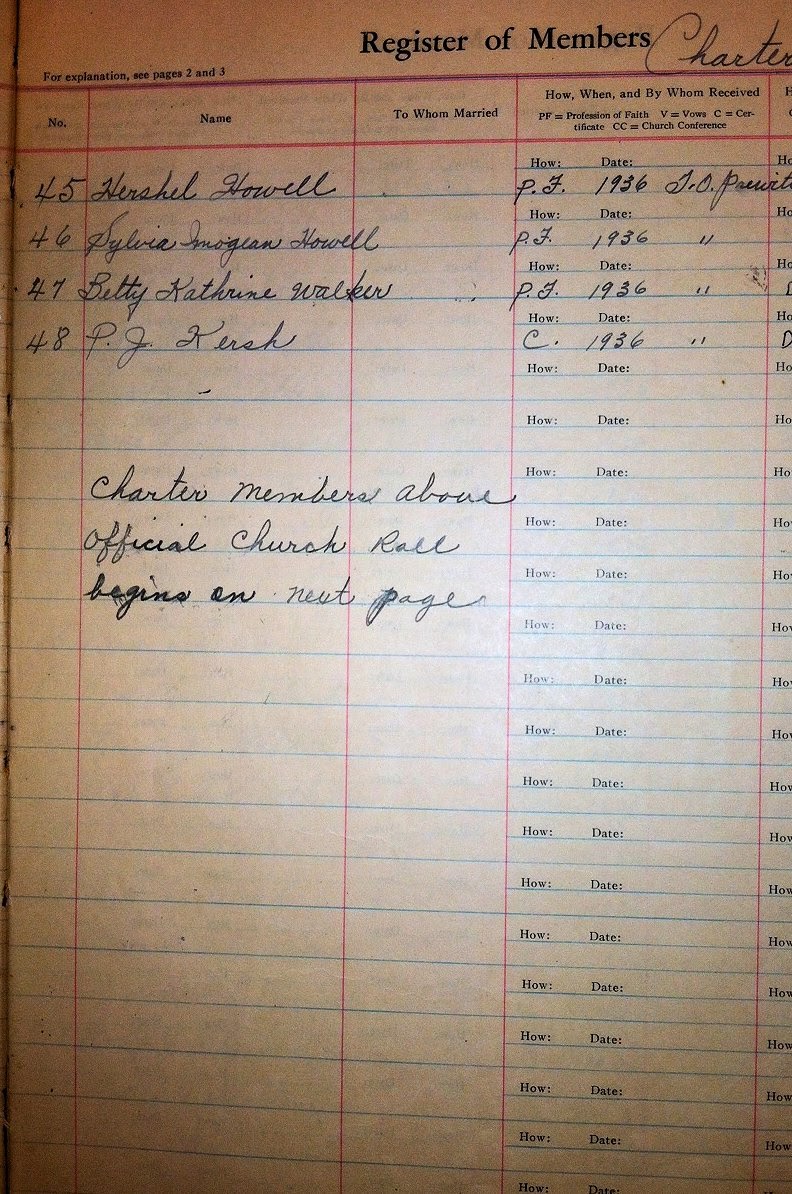 Register of Members Charter
For explanation, see pages 2 and 3
No. Name To Whom Married How, When, and By Whom Received
PF = Profession of Faith V = Vows C = Cer-
tificate CC = Church Conference
How: Date: Ho
45 Hershel Howell P.F. 1936
How: Date: Ho
46 Sylvia Imogean Howell P.F. 1936 "
How: Date: Ho
47 Betty Kathrine Walker P.F. 1936 " D
How: Date: Ho
48 P. J. Kersh C. 1936 " D
How: Date: Ho
How: Date: Ho
How: Date: Ho
Charter members above
How: Date: Ho
Official Church Roll
How: Date: Ho
begins on next page
How: Date: Ho
How: Date: Ho
How: Date: Ho
How: Date: How
How: Date: How
How: Date: How
How: Date: How
How: Date: How
How: Date: How
How: Date: How
How: Date: How
How: Date: